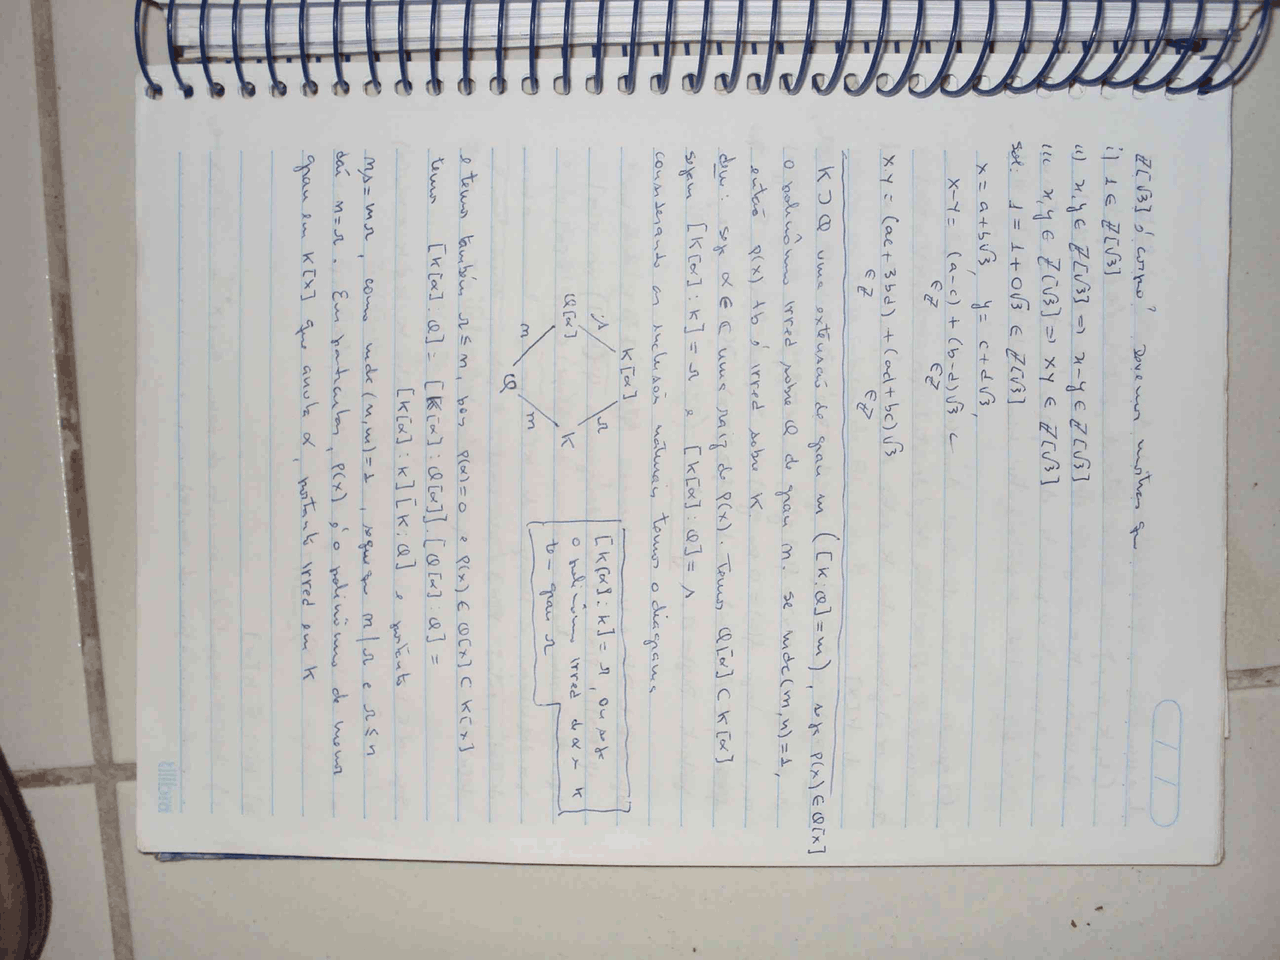 Z[√3] é corpo? Devemos mostrar que
i) 1 ∈ Z[√3]
ii) x,y ∈ Z[√3] => x-y ∈ Z[√3]
iii x,y ∈ Z[√3] => xy ∈ Z[√3]
sol: 1 = 1+0√3 ∈ Z[√3]
x = a+b√3, y = c+d√3,
x-y = (a-c) + (b-d)√3
∈Z ∈Z
x.y = (ac+3bd) + (ad+bc)√3
∈Z ∈Z
K ⊃ Q uma extensão de grau m ([K:Q]=m), seja P(x) ∈ Q[x]
o polinômio irred sobre Q de grau n. se mdc(m,n)=1,
então P(x) tb é irred sobre K.
dem: seja α ∈ C uma raiz de P(x). Temos Q[α] ⊂ K[α]
sejam [K[α]:K] = r e [K[α]:Q] = s
considerando as inclusões naturais temos o diagrama
K[α]
s r
Q[α] K
n m
Q
[K[α]:K] = r, ou seja
o polinômio irred de α > K
tem grau r
e temos também r ≤ n, pois P(α)=0 e P(x) ∈ Q[x] ⊂ K[x]
temos [K[α]:Q] = [K[α]:Q[α]].[Q[α]:Q] =
[K[α]:K][K:Q] e portanto
n.s = m r, como mdc(n,m)=1, segue que n | r e r ≤ n
daí n = r. Em particular, P(x) é o polinômio de menor
grau em K[x] que anula α, portanto irred em K
tilibra